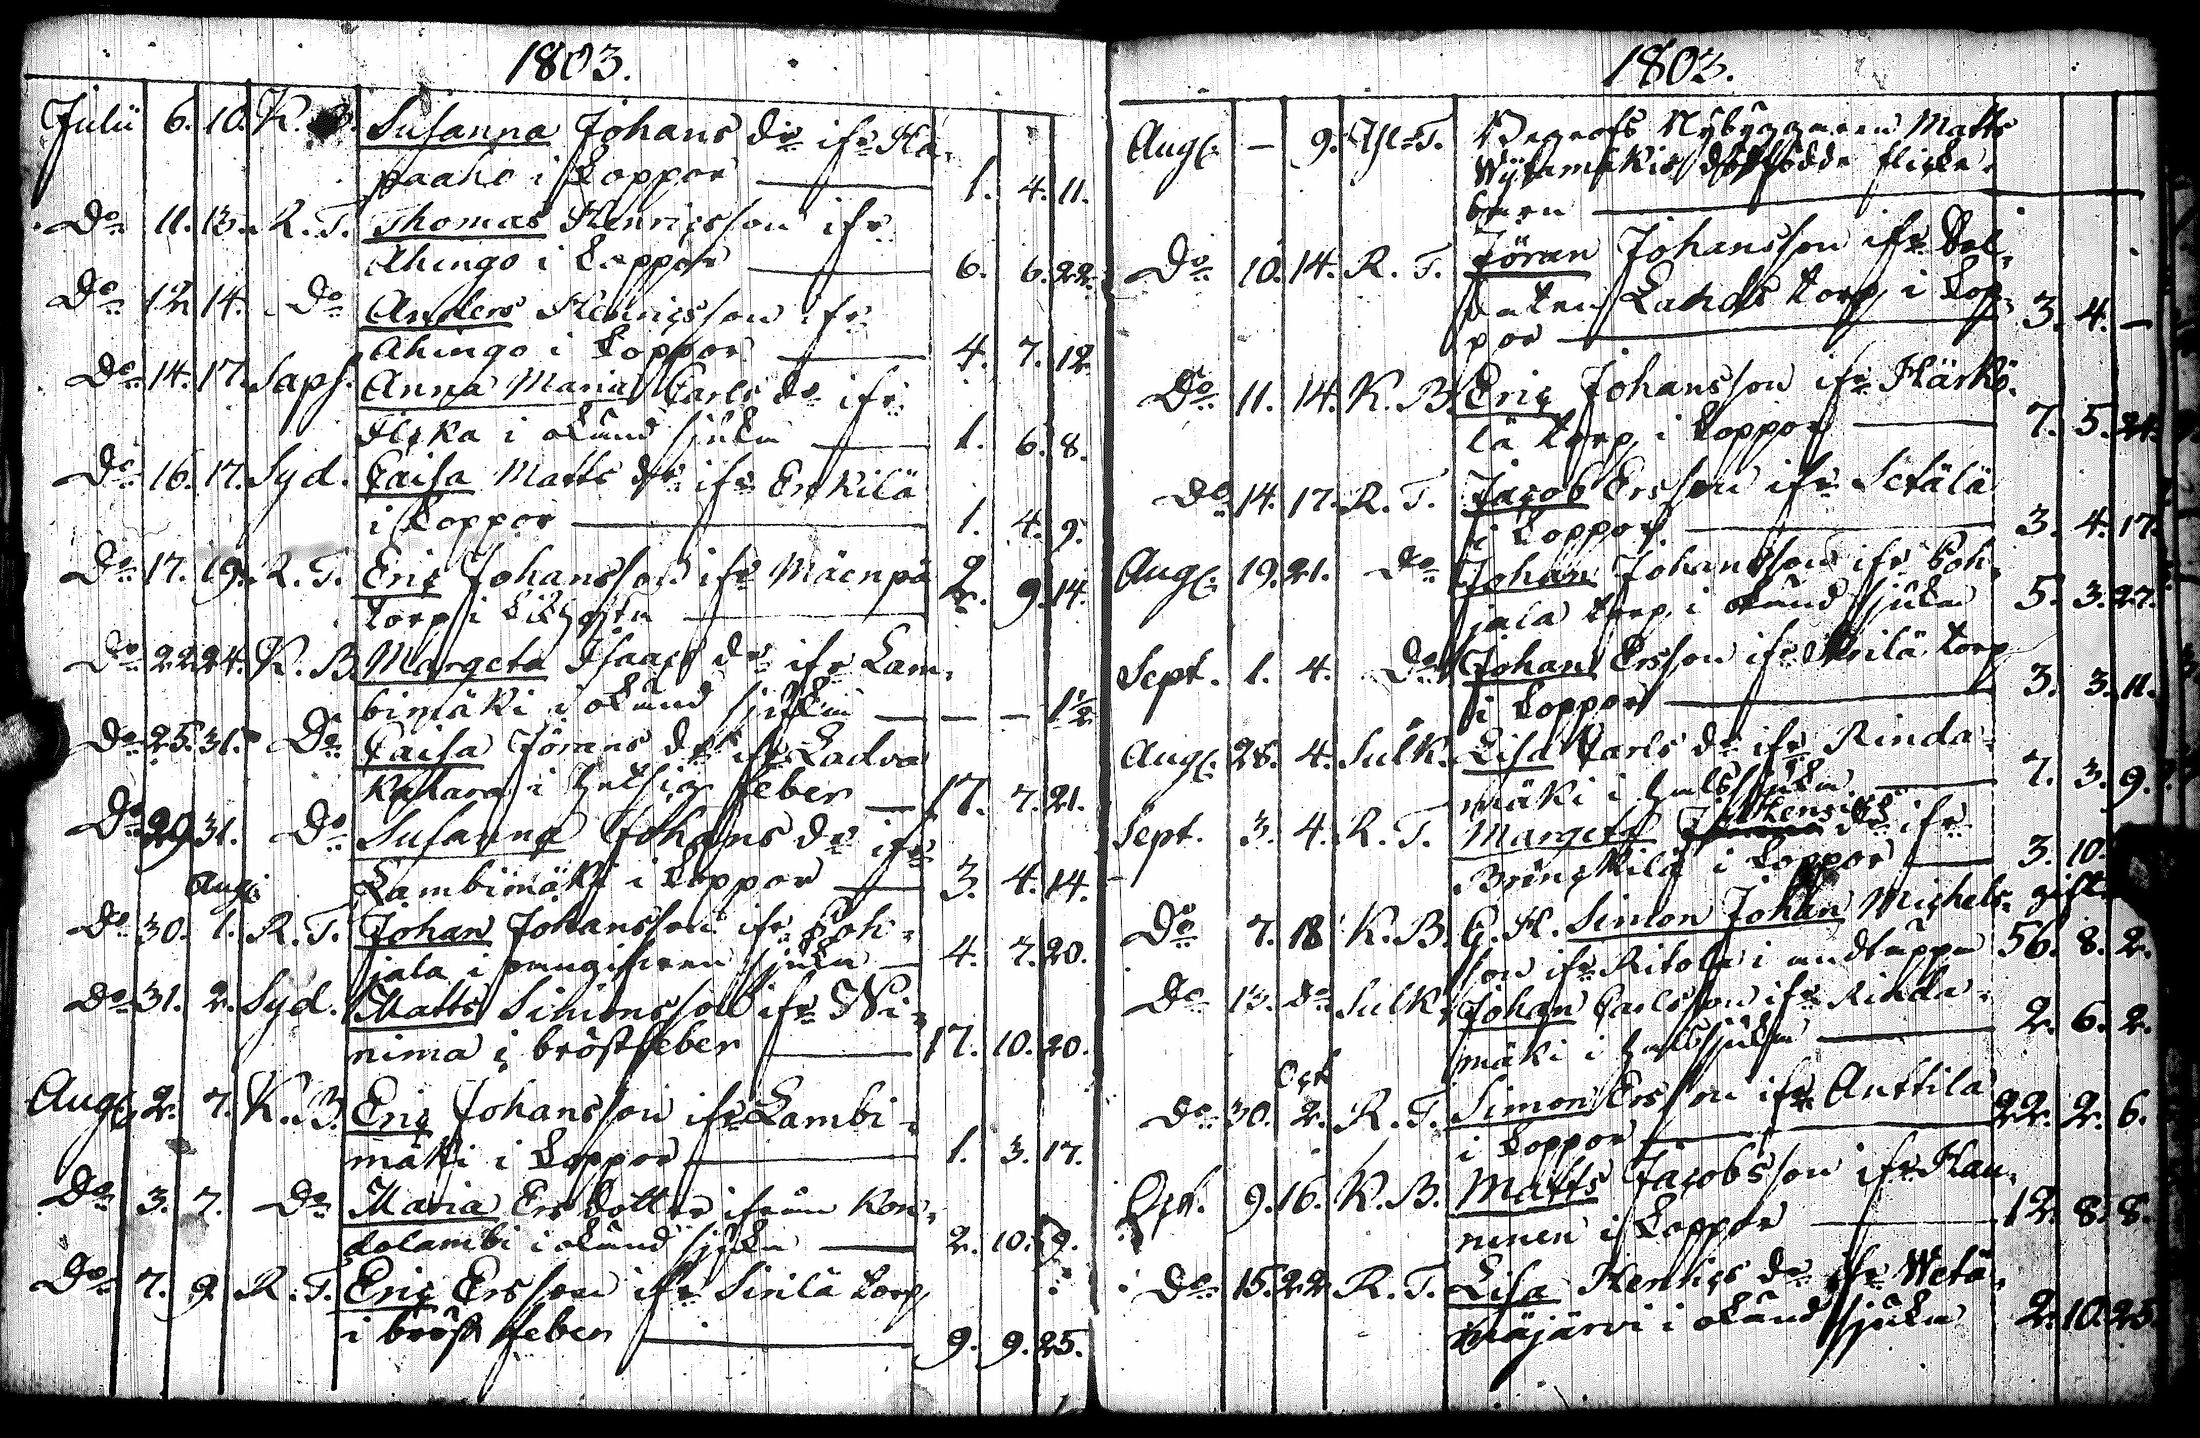 1803.
Julii 6. 10. K. B. Susanna Johans dr ifr Ha-
paaho i koppor 1. 4. 11.
Do 11. 13. R. T. Thomas Henricsson ifr
Ahingo i koppor 6. 6. 22.
Do 12 14. Do Anders Henricsson ifr
Ahingo i koppor 4. 7. 12
Do 14. 17. Anna Maria Carls dr ifr
i okund sjukd 1. 6. 8.
Do 16. 17. Syd. Caisa Matts dr ifr Erkilä
i koppor 1. 4. 9.
Do 17. 19. R. T. Eric Johansson ifr Mäenpä
torp i 2. 9. 14.
Do 22 24. K. B. Margeta Isaacs dr ifr Lam-
bimäki i okund sjukd — — 1/2
Do 25. 31. Do Caisa Jörans dr ifr Ladva
i hetsig feber 17. 7. 21.
Do 29 31. Do Susanna Johans dr ifr
Lambimäki i koppor 3. 4. 14.
Aug:
Do 30. 1. R. T. Johan Johansson ifr Poh-
jala i sjukd 4. 7. 20.
Do 31. 2. Syd. Matts Simonsson ifr Ni-
nima i bröstfeber 17. 10. 20.
Aug: 2. 7. K. B. Eric Johansson ifr Lambi-
mäki i koppor 1. 3. 17.
Do 3. 7. Do Maria Ersdotter ifrån Kon-
dolambi i okund sjukd 2. 10. 9.
Do 7. 9 R. T. Eric Ersson ifr Sirilä torp
i bröstfeber 9. 9. 25.
1803.
Aug: — 9. Nybyggaren Matts
dödfödde flicke-
barn
Do 10. 14. R. T. Jöran Johansson ifr Sol-
daten Lahds torp i kop-
por 3. 4. —
Do 11. 14. K. B. Eric Johansson ifr Härkö-
lä torp i koppor 7. 5. 21.
Do 14. 17. R. T. Jacob Ersson ifr Setälä
i koppor 3. 4. 17.
Aug: 19. 21. Do Johan Johansson ifr Poh-
jala torp i okund sjukd 5. 3. 27.
Sept. 1. 4. Do Johan Ersson ifr torp
i koppor 3. 3. 11.
Aug: 28. 4. Sulk. Lisa Carls dr ifr Rinda-
mäki i halssjukd 7. 3. 9.
Henrics
Sept. 3. 4. R. T. Margeta dr ifr
i koppor 3. 10.
Do 7. 18 K. B. G. H. Simon Johan Michels- gift
son ifr Ritola i andtäppa 56. 8. 2.
Do 13. Do Sulk. Johan Carlsson ifr Rinda-
mäki i halssjukd 2. 6. 2.
Oct
Do 30. 2. R. T. Simon Ersson ifr Anttila
i koppor 22. 2. 6.
Oct. 9. 16. K. B. Matts Jacobsson ifr Hau-
ninen i koppor 12. 8. 8.
Do 15. 22 R. T. Lisa Henrics dr ifr Wetä-
mäjärvi i okund sjukd 2. 10. 25.